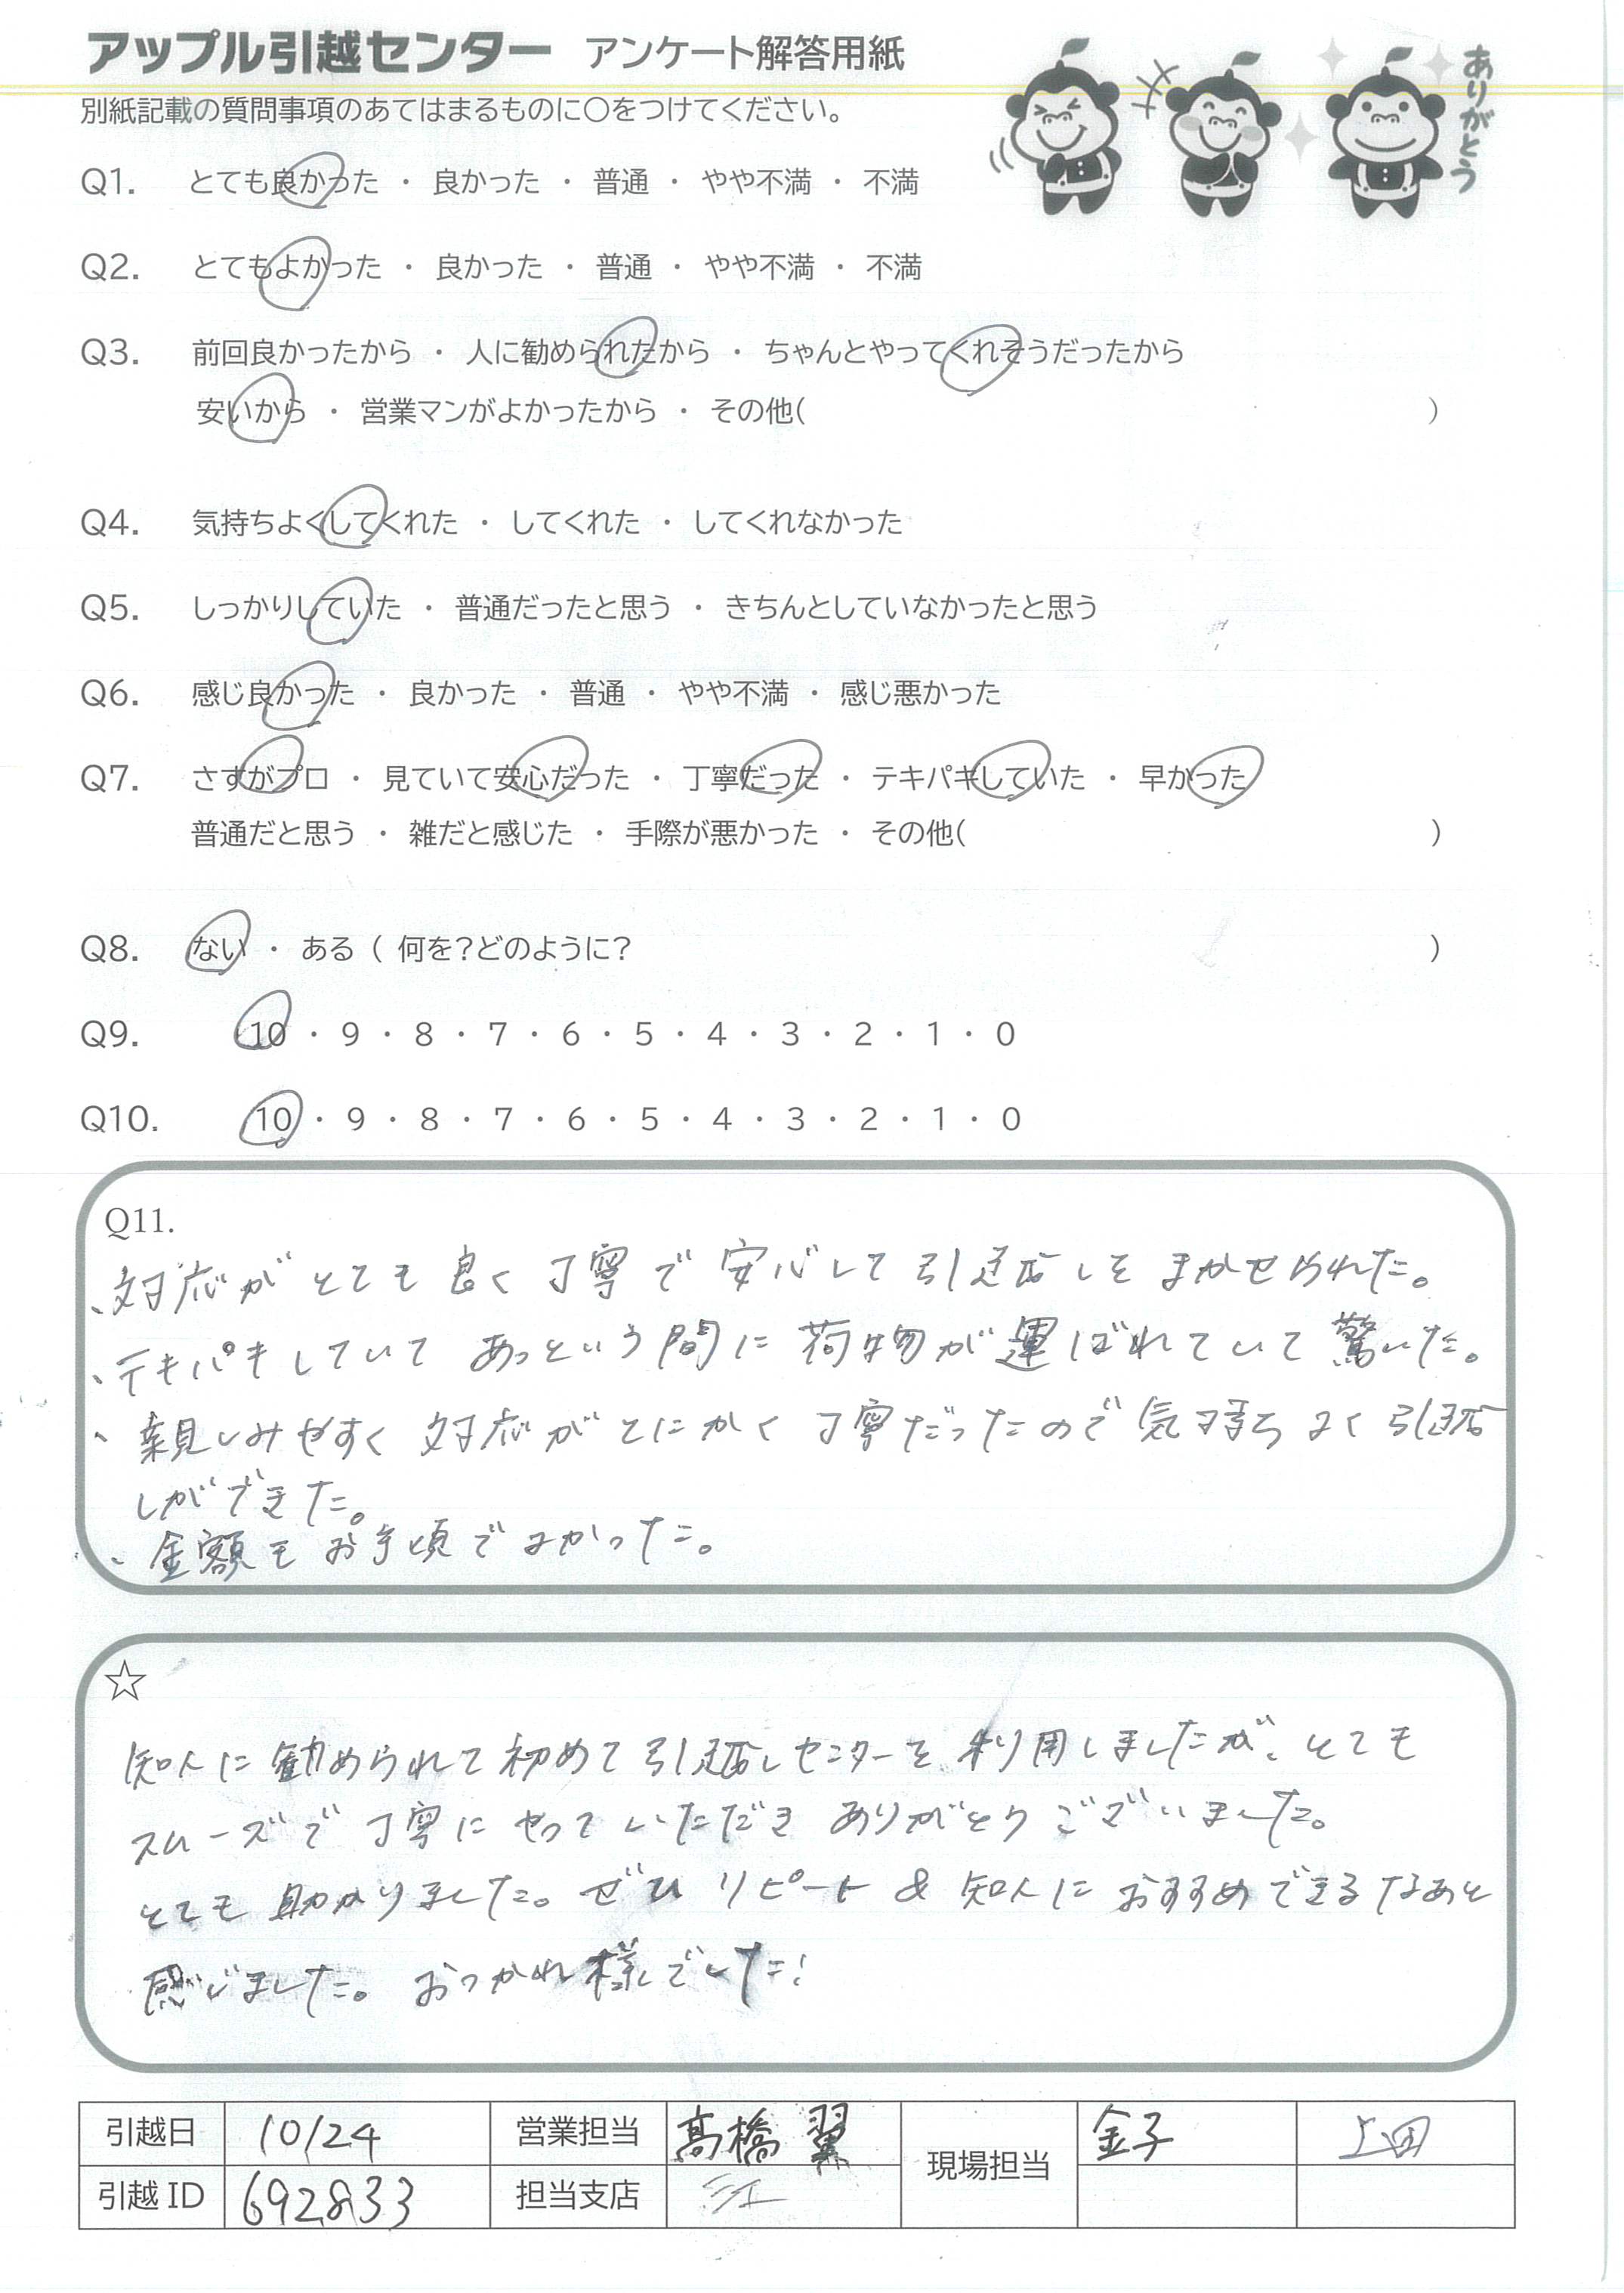 アップル引越センター アンケート解答用紙
ありがとう
別紙記載の質問事項のあてはまるものに〇をつけてください。
Q1. とても良かった ・ 良かった ・ 普通 ・ やや不満 ・ 不満
Q2. とてもよかった ・ 良かった ・ 普通 ・ やや不満 ・ 不満
Q3. 前回良かったから ・ 人に勧められたから ・ ちゃんとやってくれそうだったから
安いから ・ 営業マンがよかったから ・ その他( )
Q4. 気持ちよくしてくれた ・ してくれた ・ してくれなかった
Q5. しっかりしていた ・ 普通だったと思う ・ きちんとしていなかったと思う
Q6. 感じ良かった ・ 良かった ・ 普通 ・ やや不満 ・ 感じ悪かった
Q7. さすがプロ ・ 見ていて安心だった ・ 丁寧だった ・ テキパキしていた ・ 早かった
普通だと思う ・ 雑だと感じた ・ 手際が悪かった ・ その他( )
Q8. ない ・ ある ( 何を？どのように？ )
Q9. 10 ・ 9 ・ 8 ・ 7 ・ 6 ・ 5 ・ 4 ・ 3 ・ 2 ・ 1 ・ 0
Q10. 10 ・ 9 ・ 8 ・ 7 ・ 6 ・ 5 ・ 4 ・ 3 ・ 2 ・ 1 ・ 0
Q11.
、対応がとても良く丁寧で安心して引越しをまかせられた。
、テキパキしていてあっという間に荷物が運ばれていて驚いた。
、親しみやすく対応がとにかく丁寧だったので気持ちよく引越
しができた。
、金額もお手頃でよかった。
☆
知人に勧められて初めて引越しセンターを利用しましたが、とても
スムーズで丁寧にやっていただきありがとうございました。
とても助かりました。ぜひリピート＆知人におすすめできるなあと
感じました。おつかれ様でした！
引越日 10/24 営業担当 髙橋 翼 現場担当 金子 上田
引越ID 692833 担当支店